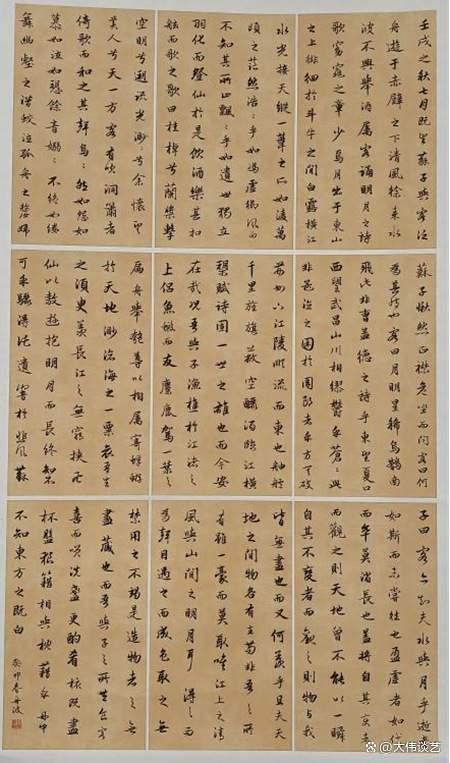 壬戌之秋七月既望蘇子與客泛
舟遊于赤壁之下清風徐來水
波不興舉酒屬客誦明月之詩
歌窈窕之章少焉月出于東山
之上徘徊於斗牛之間白露橫江
水光接天縱一葦之所如凌萬
頃之茫然浩〻乎如馮虛御風而
不知其所止飄〻乎如遺世獨立
羽化而登仙於是飲酒樂甚扣
舷而歌之歌曰桂棹兮蘭槳擊
空明兮遡流光渺〻兮余懷望
美人兮天一方客有吹洞簫者
倚歌而和之其聲烏〻然如怨如
慕如泣如愬餘音嫋〻不絕如縷
舞幽壑之潛蛟泣孤舟之嫠婦
蘇子愀然正襟危坐而問客曰何
為其然也客曰月明星稀烏鵲南
飛此非曹孟德之詩乎東望夏口
西望武昌山川相繆鬱乎蒼〻
非孟德之困於周郎者乎方其破
荊州下江陵順流而東也舳艫
千里旌旗蔽空釃酒臨江橫
槊賦詩固一世之雄也而今安
在哉況吾與子漁樵於江渚之
上侶魚蝦而友麋鹿駕一葉之
扁舟舉匏尊以相屬寄蜉蝣
於天地渺滄海之一粟哀吾生
之須臾羨長江之無窮挾飛
仙以遨遊抱明月而長終知不
可乎驟得託遺響於悲風蘇
子曰客亦知夫水與月乎逝者
如斯而未嘗往也盈虛者如代
而卒莫消長也蓋將自其變者
而觀之則天地曾不能以一瞬
自其不變者而觀之則物與我
皆無盡也而又何羨乎且夫天
地之間物各有主苟非吾之所
有雖一毫而莫取唯江上之清
風與山間之明月耳得之而
為聲目遇之而成色取之無
禁用之不竭是造物者之無
盡藏也而吾與子之所共食客
喜而笑洗盞更酌肴核既盡
杯盤狼籍相與枕藉乎舟中
不知東方之既白
癸卯春
@大伟谈艺